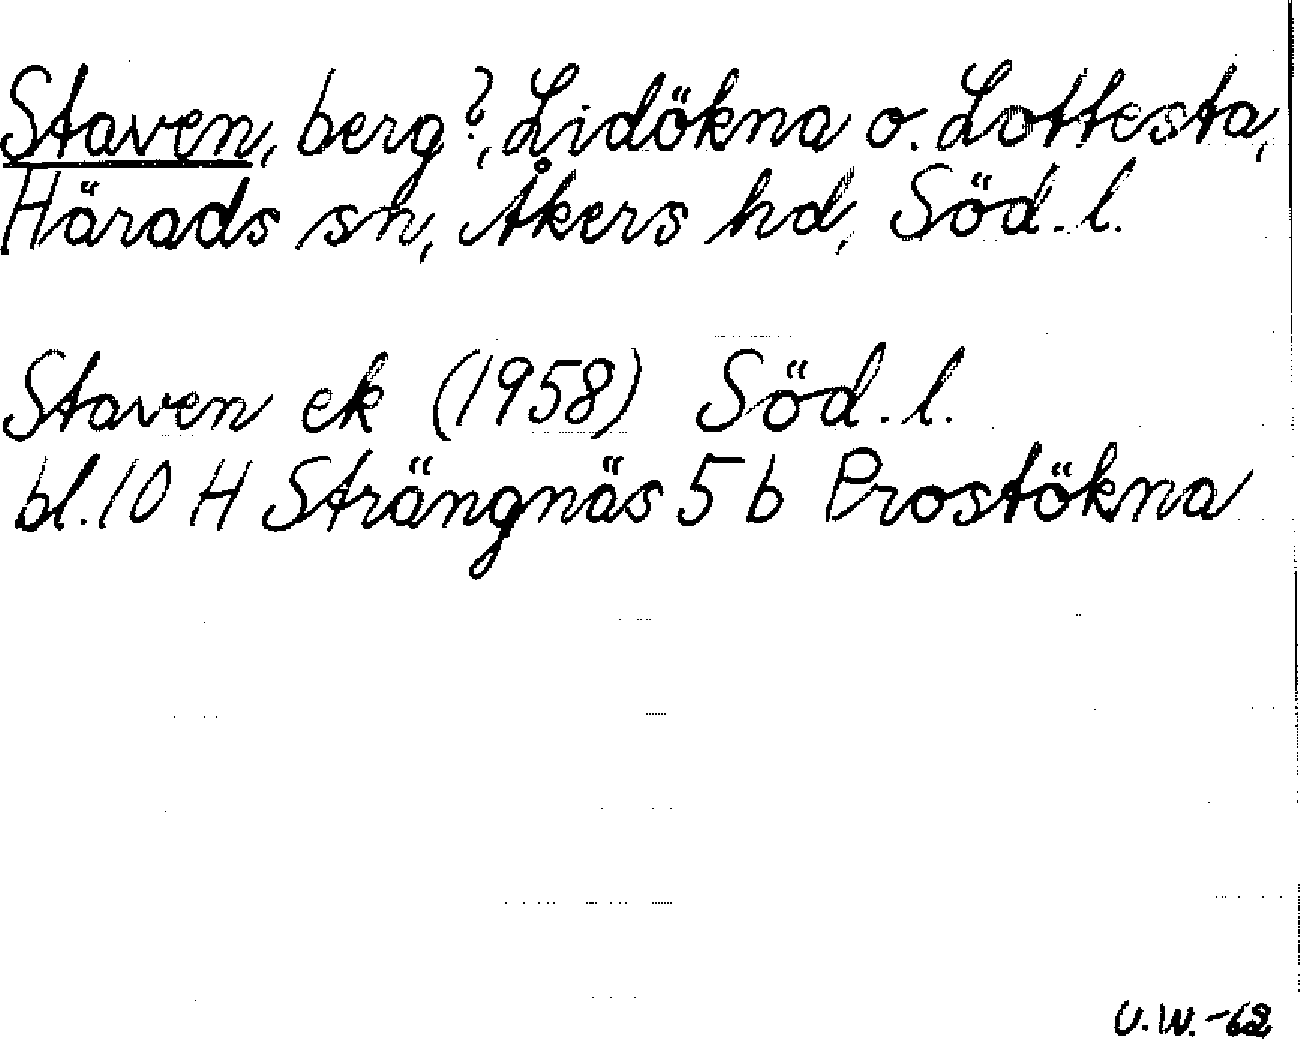 Staven, berg?, Lidökna o. Lottesta,
Härads sn, Åkers hd, Söd. l.
Staven ek (1958) Söd. l.
bl. 10 H Strängnäs 5 b Prostökna
U.W.-62